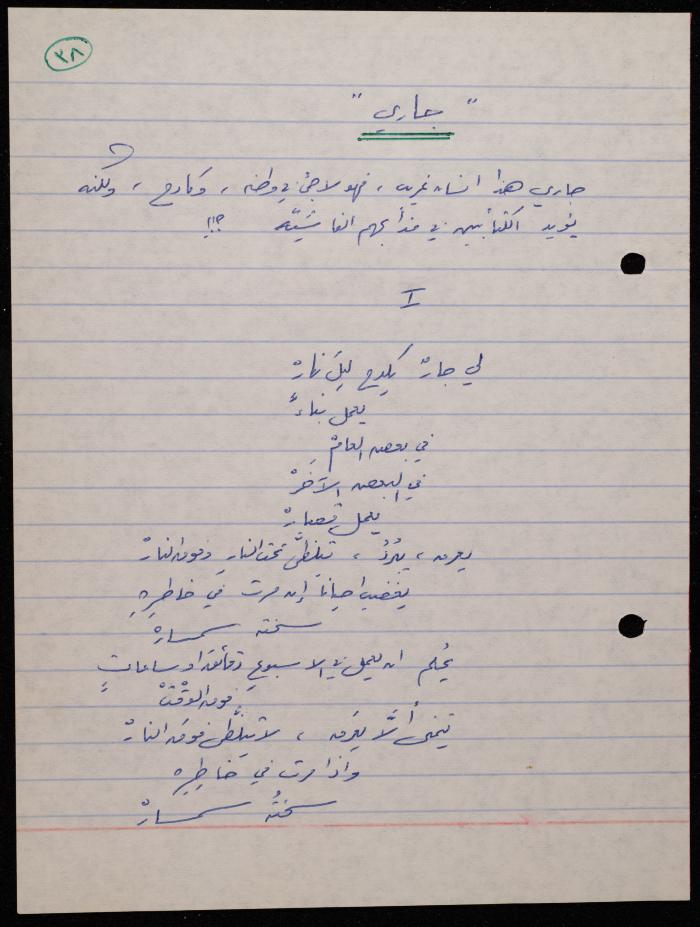 ٣٨
" جاري "
جاري هذا انسان غريب ، فهو لاجئ في وطنه ، وكادح ، ولكنه
يؤيد الكتائبيين في مذابحهم الفاشيّة ؟!!
I
لي جارْ يكدح ليلَ نهارْ
يعمل بناءً
في بعض العامْ
في البعض الآخَرْ
يعمل قصارْ
يعرق ، يبردُ ، يتلظّى تحت النارِ وفوق النارْ
يغضب احياناً إن مرت في خاطرِهِ
سحنة سمسارْ
يحلم ان يعمل في الاسبوع دقائق او ساعاتٍ
فوق الوقْتْ
يتمنى ألَّا يعرق ، لا يتلظّى فوق النارْ
واذا مرت في خاطِرِه
سحنةُ سمسارْ